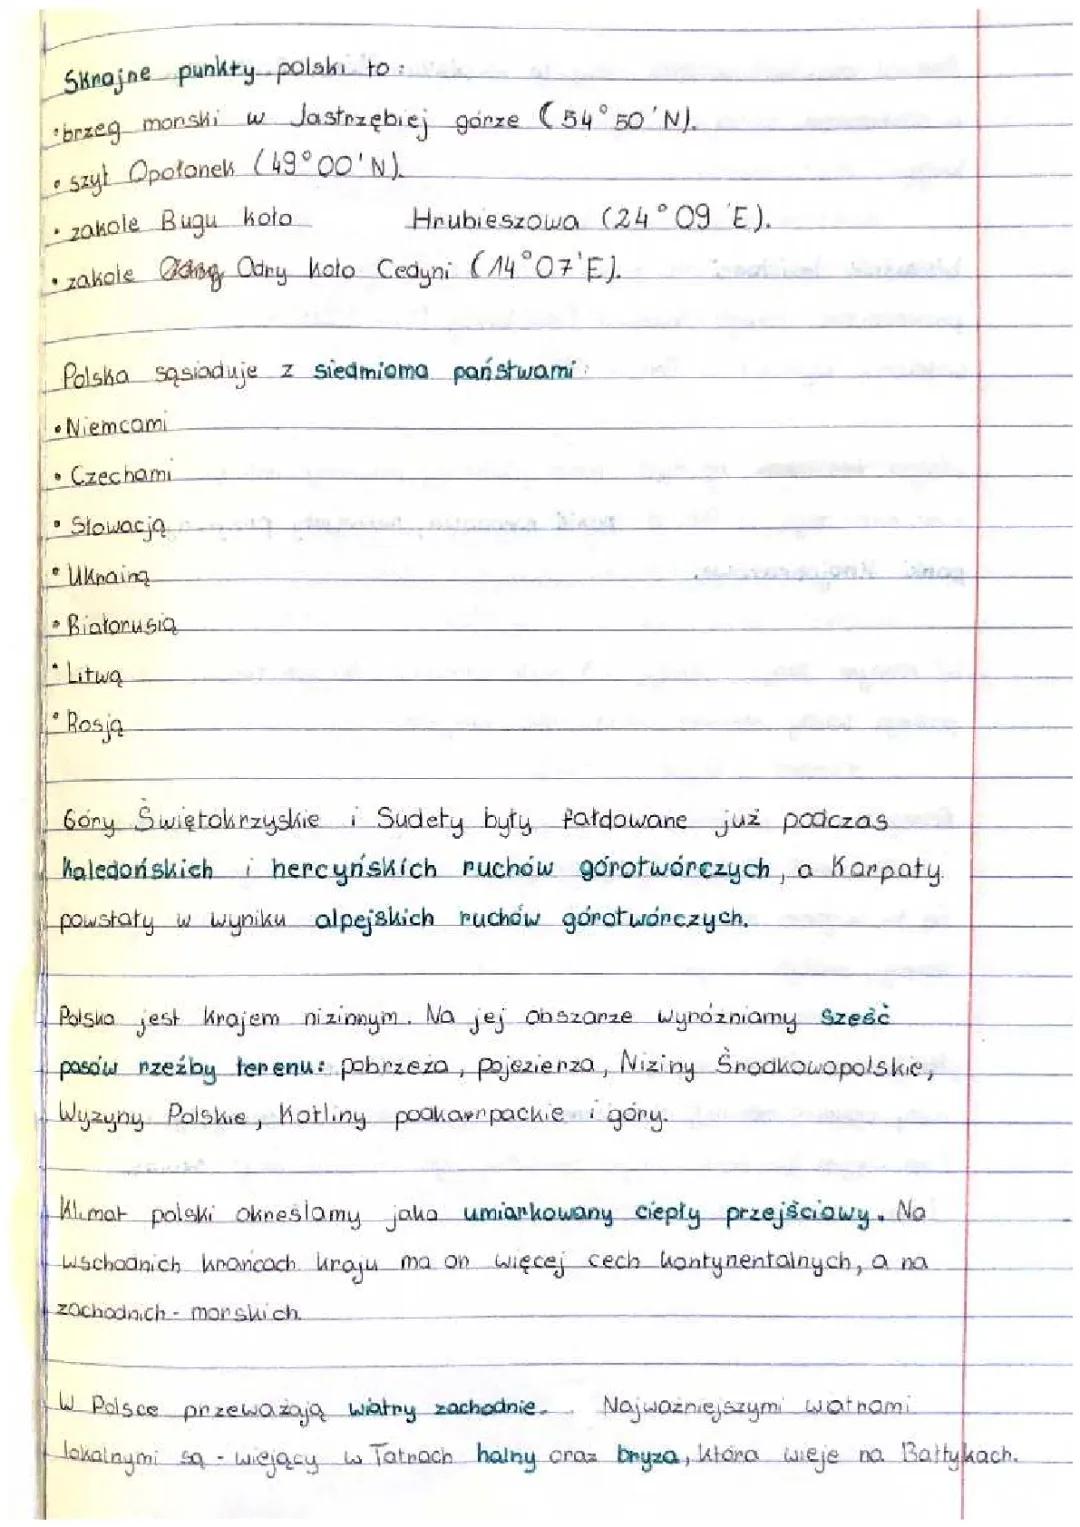 Skrajne punkty polski to:
• brzeg morski w Jastrzębiej górze (54°50'N).
• szyt Opołonek (49°00'N).
• zakole Bugu koło Hrubieszowa (24°09'E).
• zakole Odry koło Cedyni (14°07'E).
Polska sąsiaduje z siedmioma państwami:
• Niemcami
• Czechami
• Słowacją
• Ukrainą
• Białorusią
• Litwą
• Rosją
Góry Świętokrzyskie i Sudety były fałdowane już podczas
kaledońskich i hercyńskich ruchów górotwórczych, a Karpaty
powstały w wyniku alpejskich ruchów górotwórczych.
Polska jest krajem nizinnym. Na jej obszarze wyróżniamy sześć
pasów rzeźby terenu: pobrzeża, pojezierza, Niziny Środkowopolskie,
Wyżyny Polskie, Kotliny podkarpackie i góry.
Klimat polski określamy jako umiarkowany ciepły przejściowy. Na
wschodnich krańcach kraju ma on więcej cech kontynentalnych, a na
zachodnich - morskich.
W Polsce przeważają wiatry zachodnie. Najważniejszymi watrami
lokalnymi są - wiejący w Tatrach halny oraz bryza, która wieje na Bałtykach.